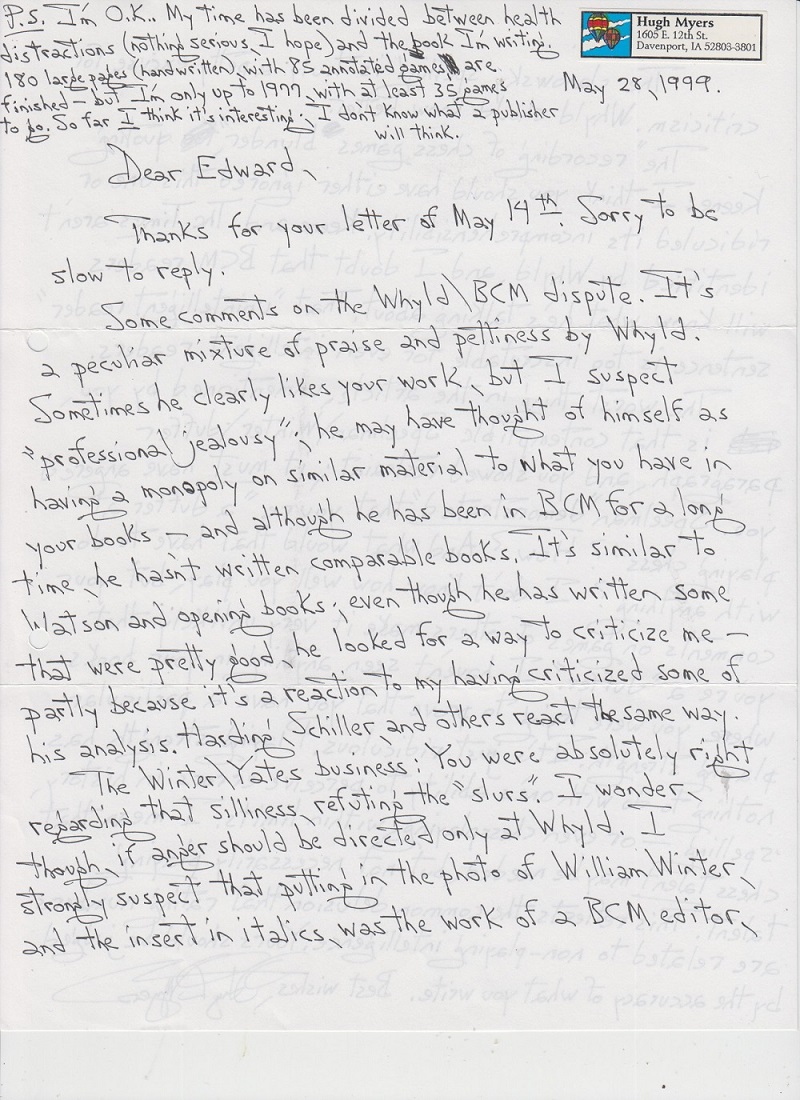 P.S. I'm O.K.. My time has been divided between health
distractions (nothing serious, I hope) and the book I'm writing.
180 large pages (handwritten), with 85 annotated games are
finished — but I'm only up to 1977, with at least 35 games
to go. So far I think it's interesting; I don't know what a publisher
will think.
Hugh Myers
1605 E. 12th St.
Davenport, IA 52803-3801
May 28, 1999.
Dear Edward,
Thanks for your letter of May 14th. Sorry to be
slow to reply.
Some comments on the Whyld\BCM dispute. It's
a peculiar mixture of praise and pettiness by Whyld.
Sometimes he clearly likes your work, but I suspect
"professional jealousy"; he may have thought of himself as
having a monopoly on similar material to what you have in
your books — and although he has been in BCM for a long
time, he hasn't written comparable books. It's similar to
Watson and opening books; even though he has written some
that were pretty good, he looked for a way to criticize me —
partly because it's a reaction to my having criticized some of
his analysis. Harding, Schiller, and others react the same way.
The Winter\Yates business: You were absolutely right
regarding that silliness, refuting the "slurs". I wonder,
though, if anger should be directed only at Whyld. I
strongly suspect that putting in the photo of William Winter,
and the insert in italics, was the work of a BCM editor,